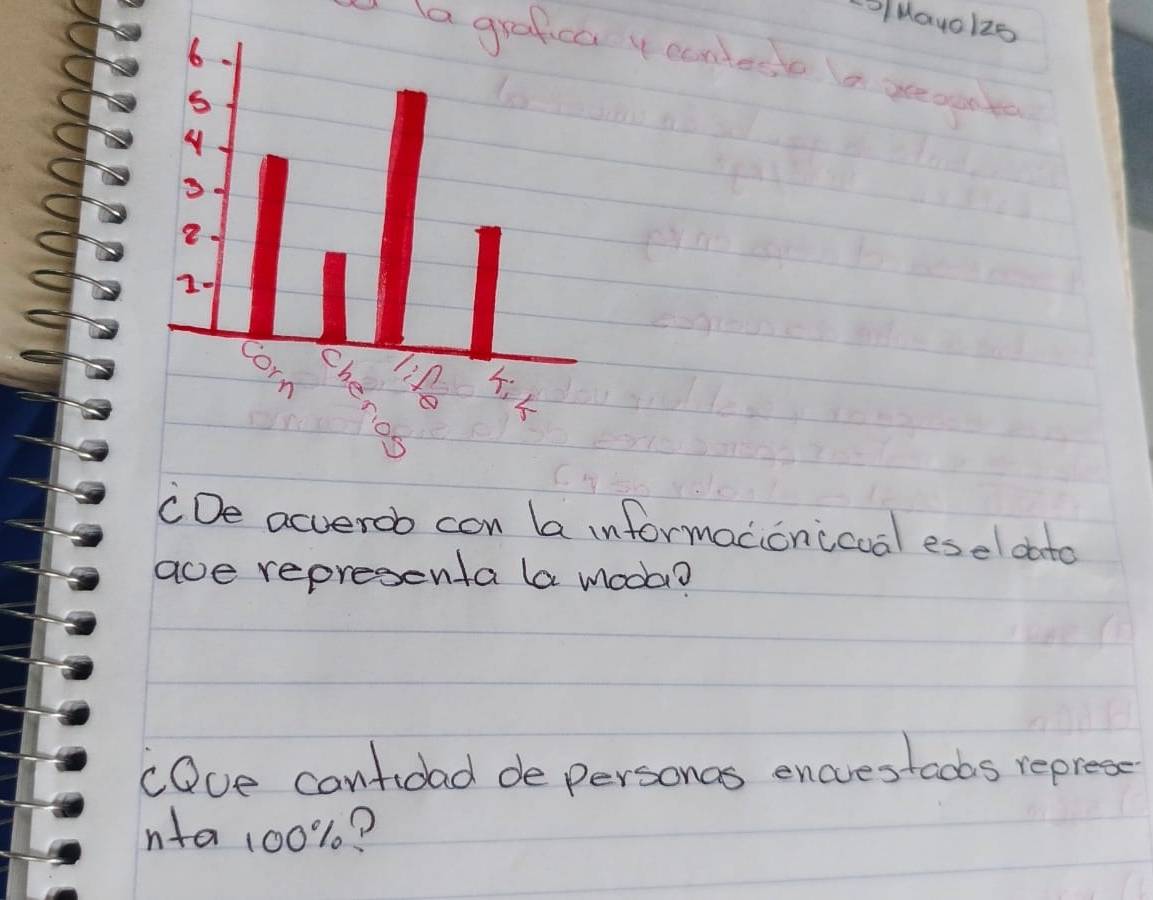 /Mayo/25
la grafica y contesta la pregunta
6
5
4
3
2
1
Corn
Cherios
life
¿De acuerdo con la información¿cuál es el dato
que representa la moda?
¿Que cantidad de personas encuestadas represe-
nta 100%?